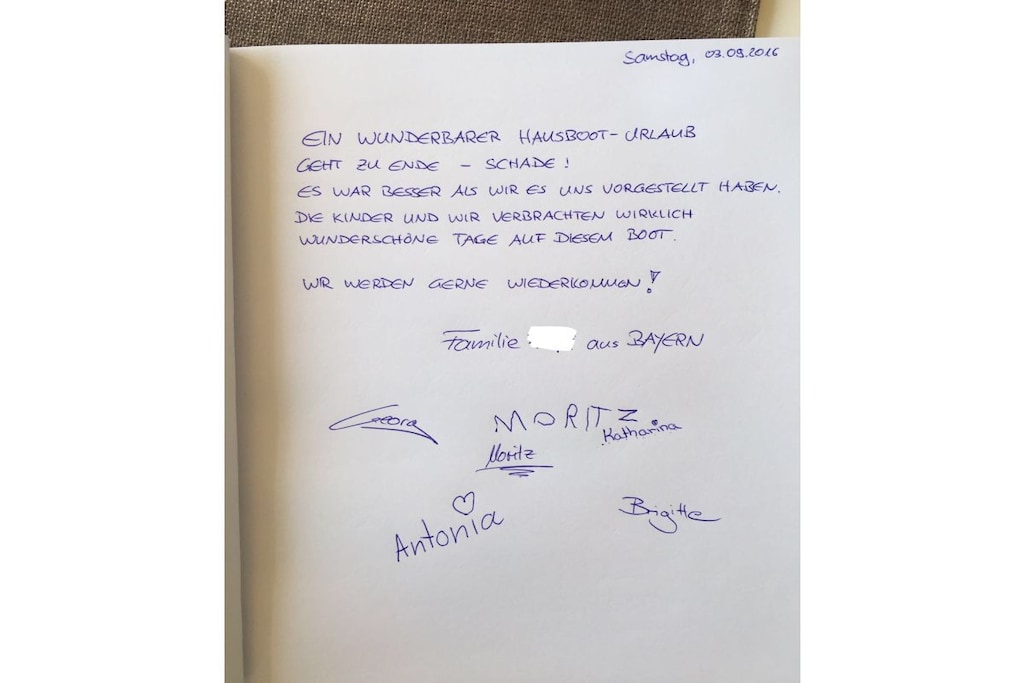 Samstag, 03.09.2016
EIN WUNDERBARER HAUSBOOT-URLAUB
GEHT ZU ENDE – SCHADE!
ES WAR BESSER ALS WIR ES UNS VORGESTELLT HABEN.
DIE KINDER UND WIR VERBRACHTEN WIRKLICH
WUNDERSCHÖNE TAGE AUF DIESEM BOOT.
WIR WERDEN GERNE WIEDERKOMMEN!
Familie aus BAYERN
Georg MORITZ
Katharina
Moritz
Antonia
Brigitte